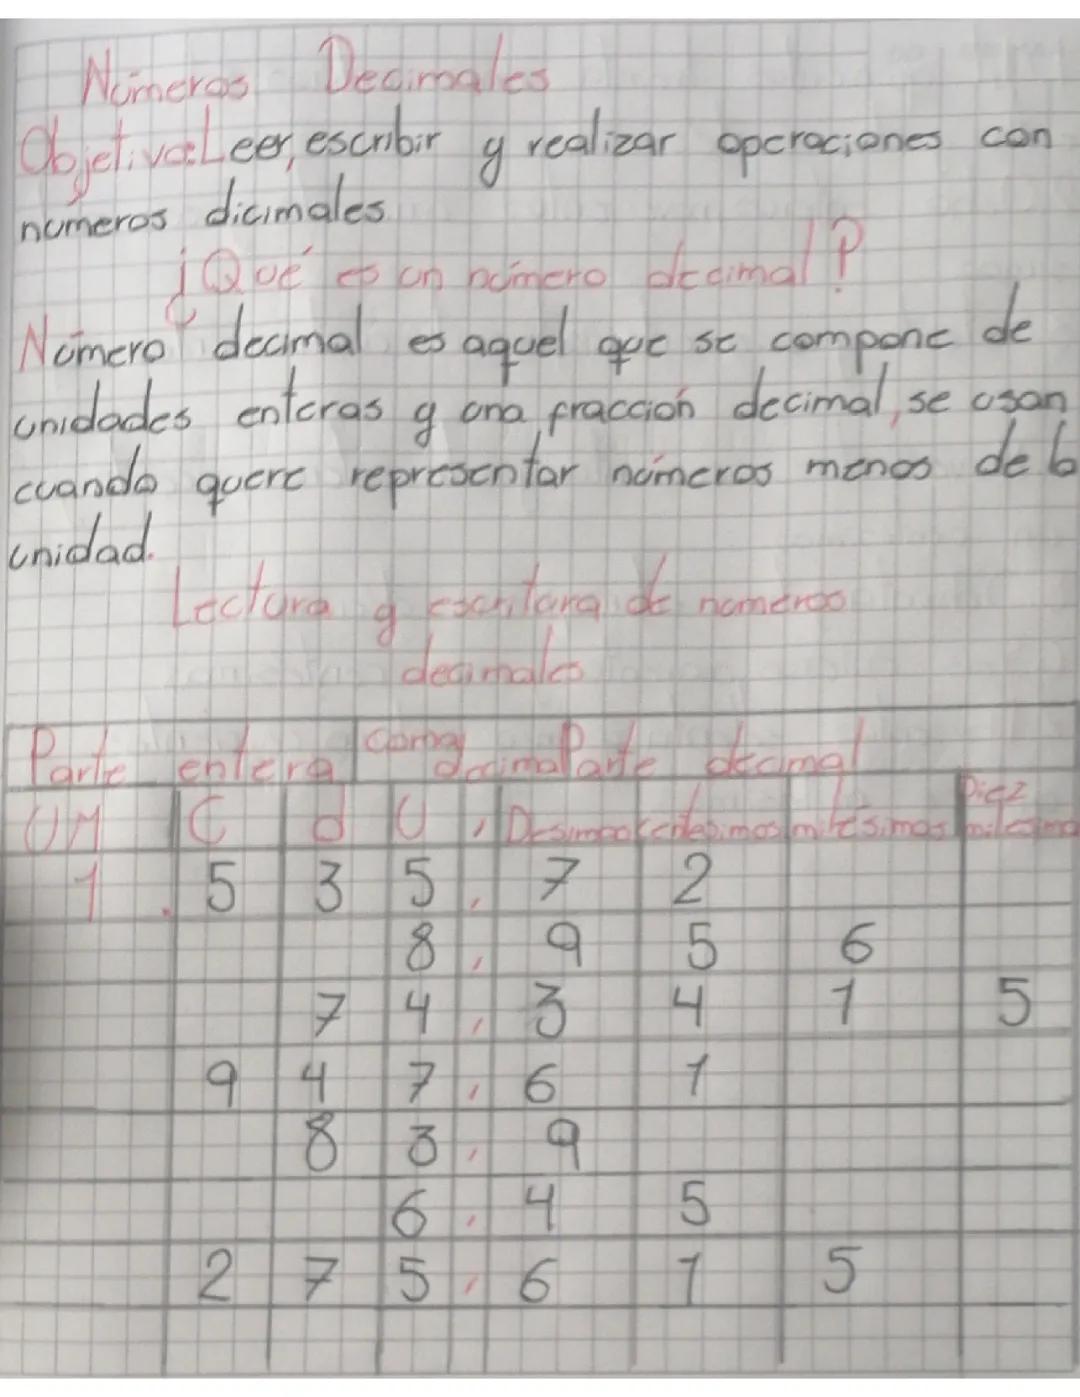 Números Decimales
Objetivo: Leer, escribir y realizar operaciones con
numeros dicimales
¿Qué es un número decimal?
Número decimal es aquel que se compone de
unidades enteras y una fracción decimal, se usan
cuando quere representar números menos de la
unidad.
Lectura y escritura de numeros
decimales
Parte entera coma decimal Parte decimal
UM C d U , Desimos centesimos milesimas Diez milesima
1 . 5 3 5 , 7 2
8 , 9 5 6
7 4 , 3 4 1 5
9 4 7 , 6 1
8 3 , 9
6 , 4 5
2 7 5 , 6 1 5